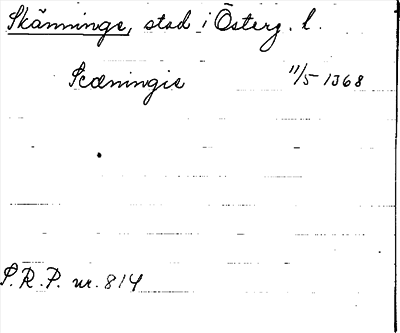 Skänninge, stad i Österg. l.
Scæningie 11/5 1368
S.R.P. nr. 814